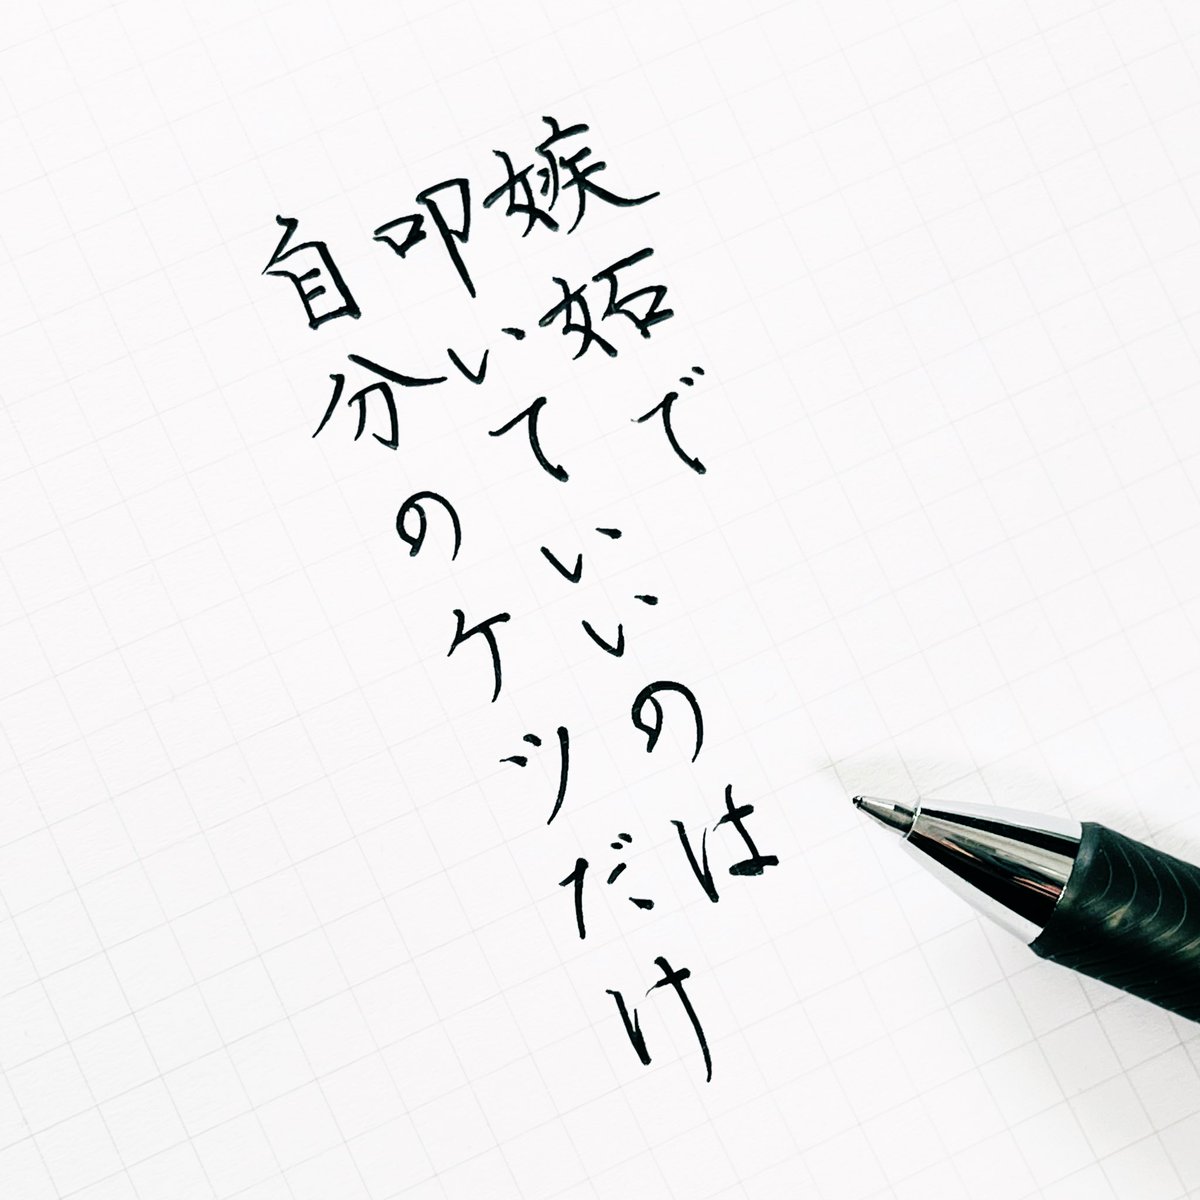 嫉妬で
叩いていいのは
自分のケツだけ